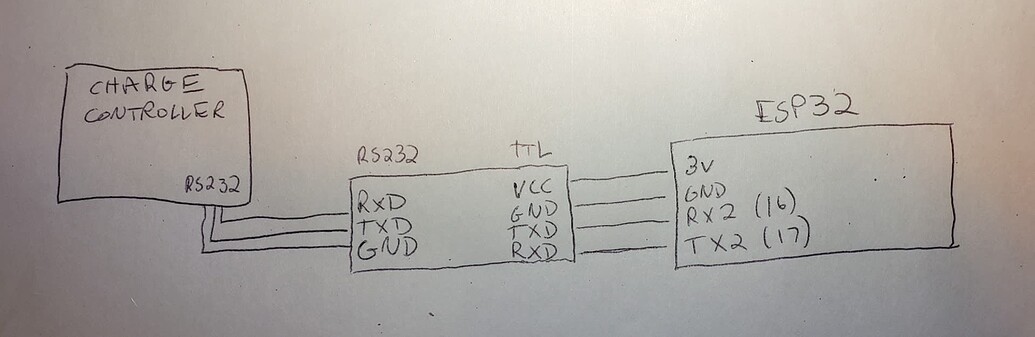 CHARGE
CONTROLLER
RS232
RS232
RXD
TXD
GND
TTL
VCC
GND
TXD
RXD
ESP32
3V
GND
RX2 (16)
TX2 (17)